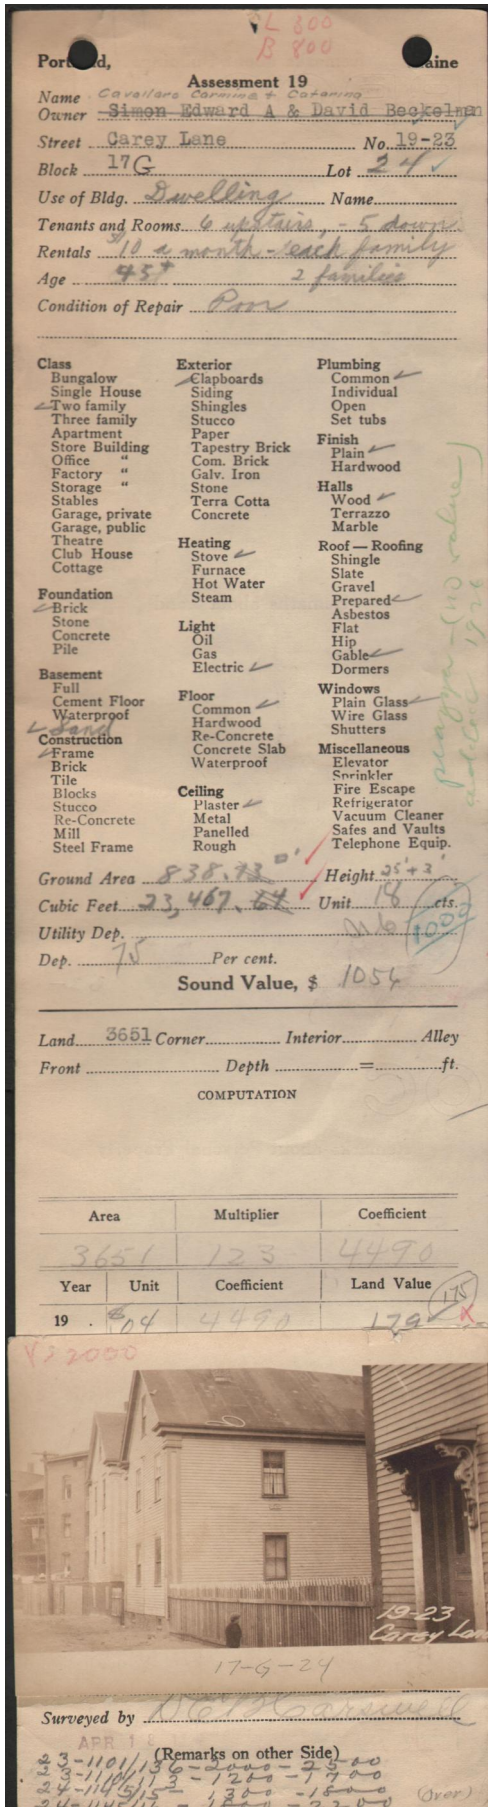 L 300
B 800
Portland, Maine
Assessment 19
Name Cavallaro Carmine & Catarina
Owner Simon Edward A & David Beckelman
Street Carey Lane No. 19-23
Block 17G Lot 24
Use of Bldg. Dwelling Name
Tenants and Rooms 6 upstairs, - 5 down
Rentals $10 a month - each family
Age 45+ 2 families
Condition of Repair Poor
Class
Bungalow
Single House
✓Two family
Three family
Apartment
Store Building
Office "
Factory "
Storage "
Stables
Garage, private
Garage, public
Theatre
Club House
Cottage
Foundation
✓Brick
Stone
Concrete
Pile
Basement
Full
Cement Floor
Waterproof
✓Sand
Construction
✓Frame
Brick
Tile
Blocks
Stucco
Re-Concrete
Mill
Steel Frame
Exterior
✓Clapboards
Siding
Shingles
Stucco
Paper
Tapestry Brick
Com. Brick
Galv. Iron
Stone
Terra Cotta
Concrete
Heating
Stove ✓
Furnace
Hot Water
Steam
Light
Oil
Gas
Electric ✓
Floor
Common ✓
Hardwood
Re-Concrete
Concrete Slab
Waterproof
Ceiling
Plaster ✓
Metal
Panelled
Rough
Plumbing
Common ✓
Individual
Open
Set tubs
Finish
Plain ✓
Hardwood
Halls
Wood ✓
Terrazzo
Marble
Roof — Roofing
Shingle
Slate
Gravel
Prepared ✓
Asbestos
Flat
Hip
Gable ✓
Dormers
Windows
Plain Glass ✓
Wire Glass
Shutters
Miscellaneous
Elevator
Sprinkler
Fire Escape
Refrigerator
Vacuum Cleaner
Safes and Vaults
Telephone Equip.
piazza - (no value)
1926
Ground Area 838.73 □' Height 25'+3'
Cubic Feet 23,467.64 Unit 18 cts.
Utility Dep. 1000
Dep. 75 Per cent.
Sound Value, $ 1056
Land 3651 Corner Interior Alley
Front Depth = ft.
COMPUTATION
Area Multiplier Coefficient
3651 123 4490
Year Unit Coefficient Land Value
19 . $.04 4490 179 175 X
VS 2000
19-23
Carey Lane
17-G-24
Surveyed by
APR 1
(Remarks on other Side)
23-1101/136-2000-2500
(over)